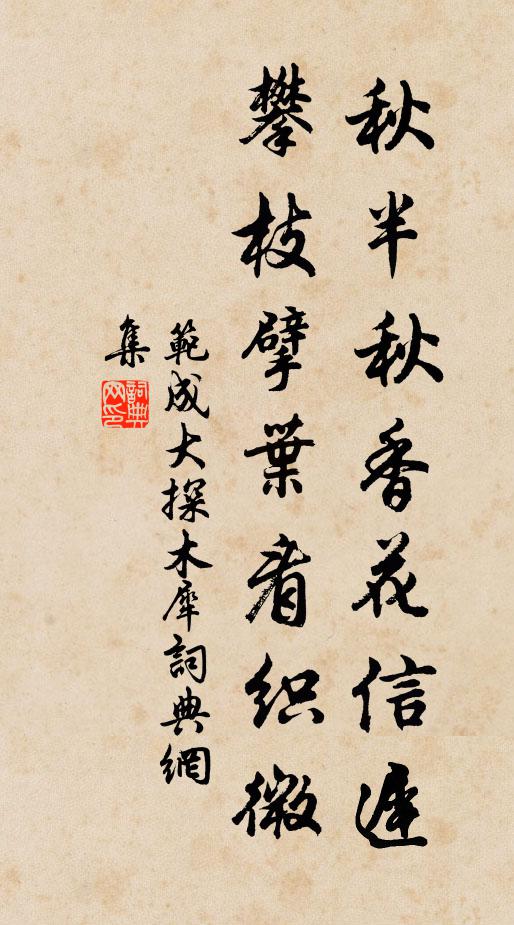 秋半秋香花信遲
攀枝擘葉看织微
範成大探木犀詞典網
集
詞典网印